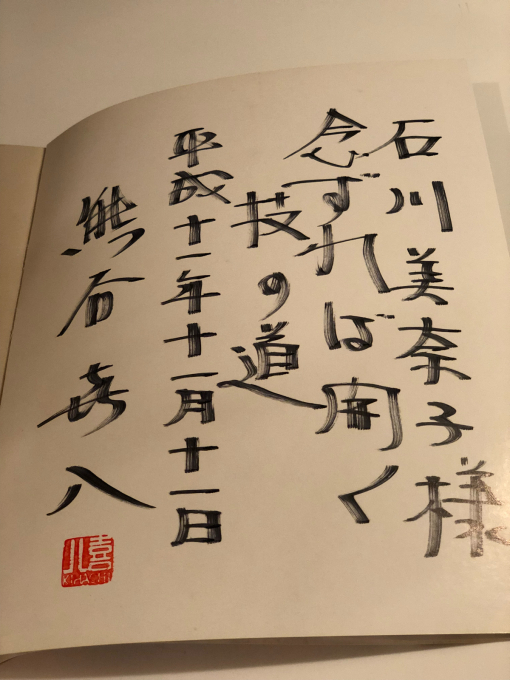 石川美奈子様
念ずれば開く
技の道
平成十一年十一月十一日
熊谷喜八
喜八